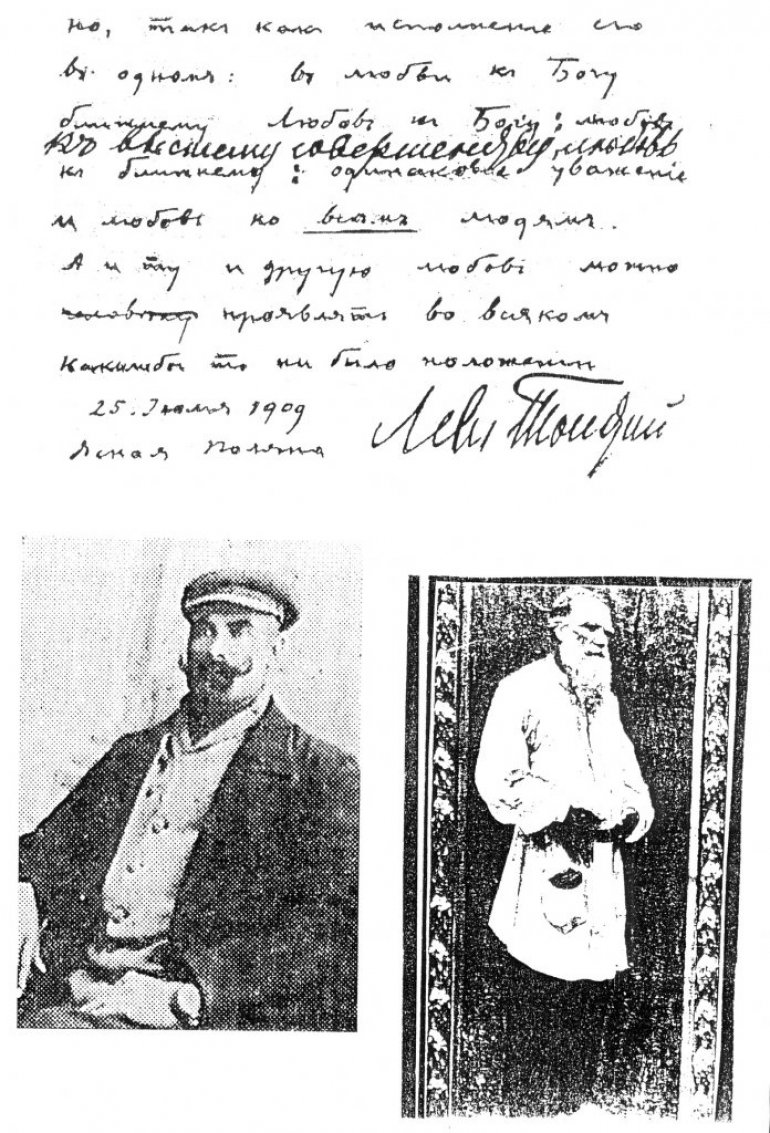 но, такъ какъ исполненіе его
въ одномъ: въ любви къ Богу
ближнему Любовь къ Богу: любовь
къ высшему совершенству, любовь
къ ближнему: одинаковое уваженіе
и любовь ко всѣмъ людямъ.
А и ту и другую любовь можно
проявлять во всякомъ
какимъ бы то ни было положеніи
25. Іюля 1909
Ясная Поляна
Левъ Толстой